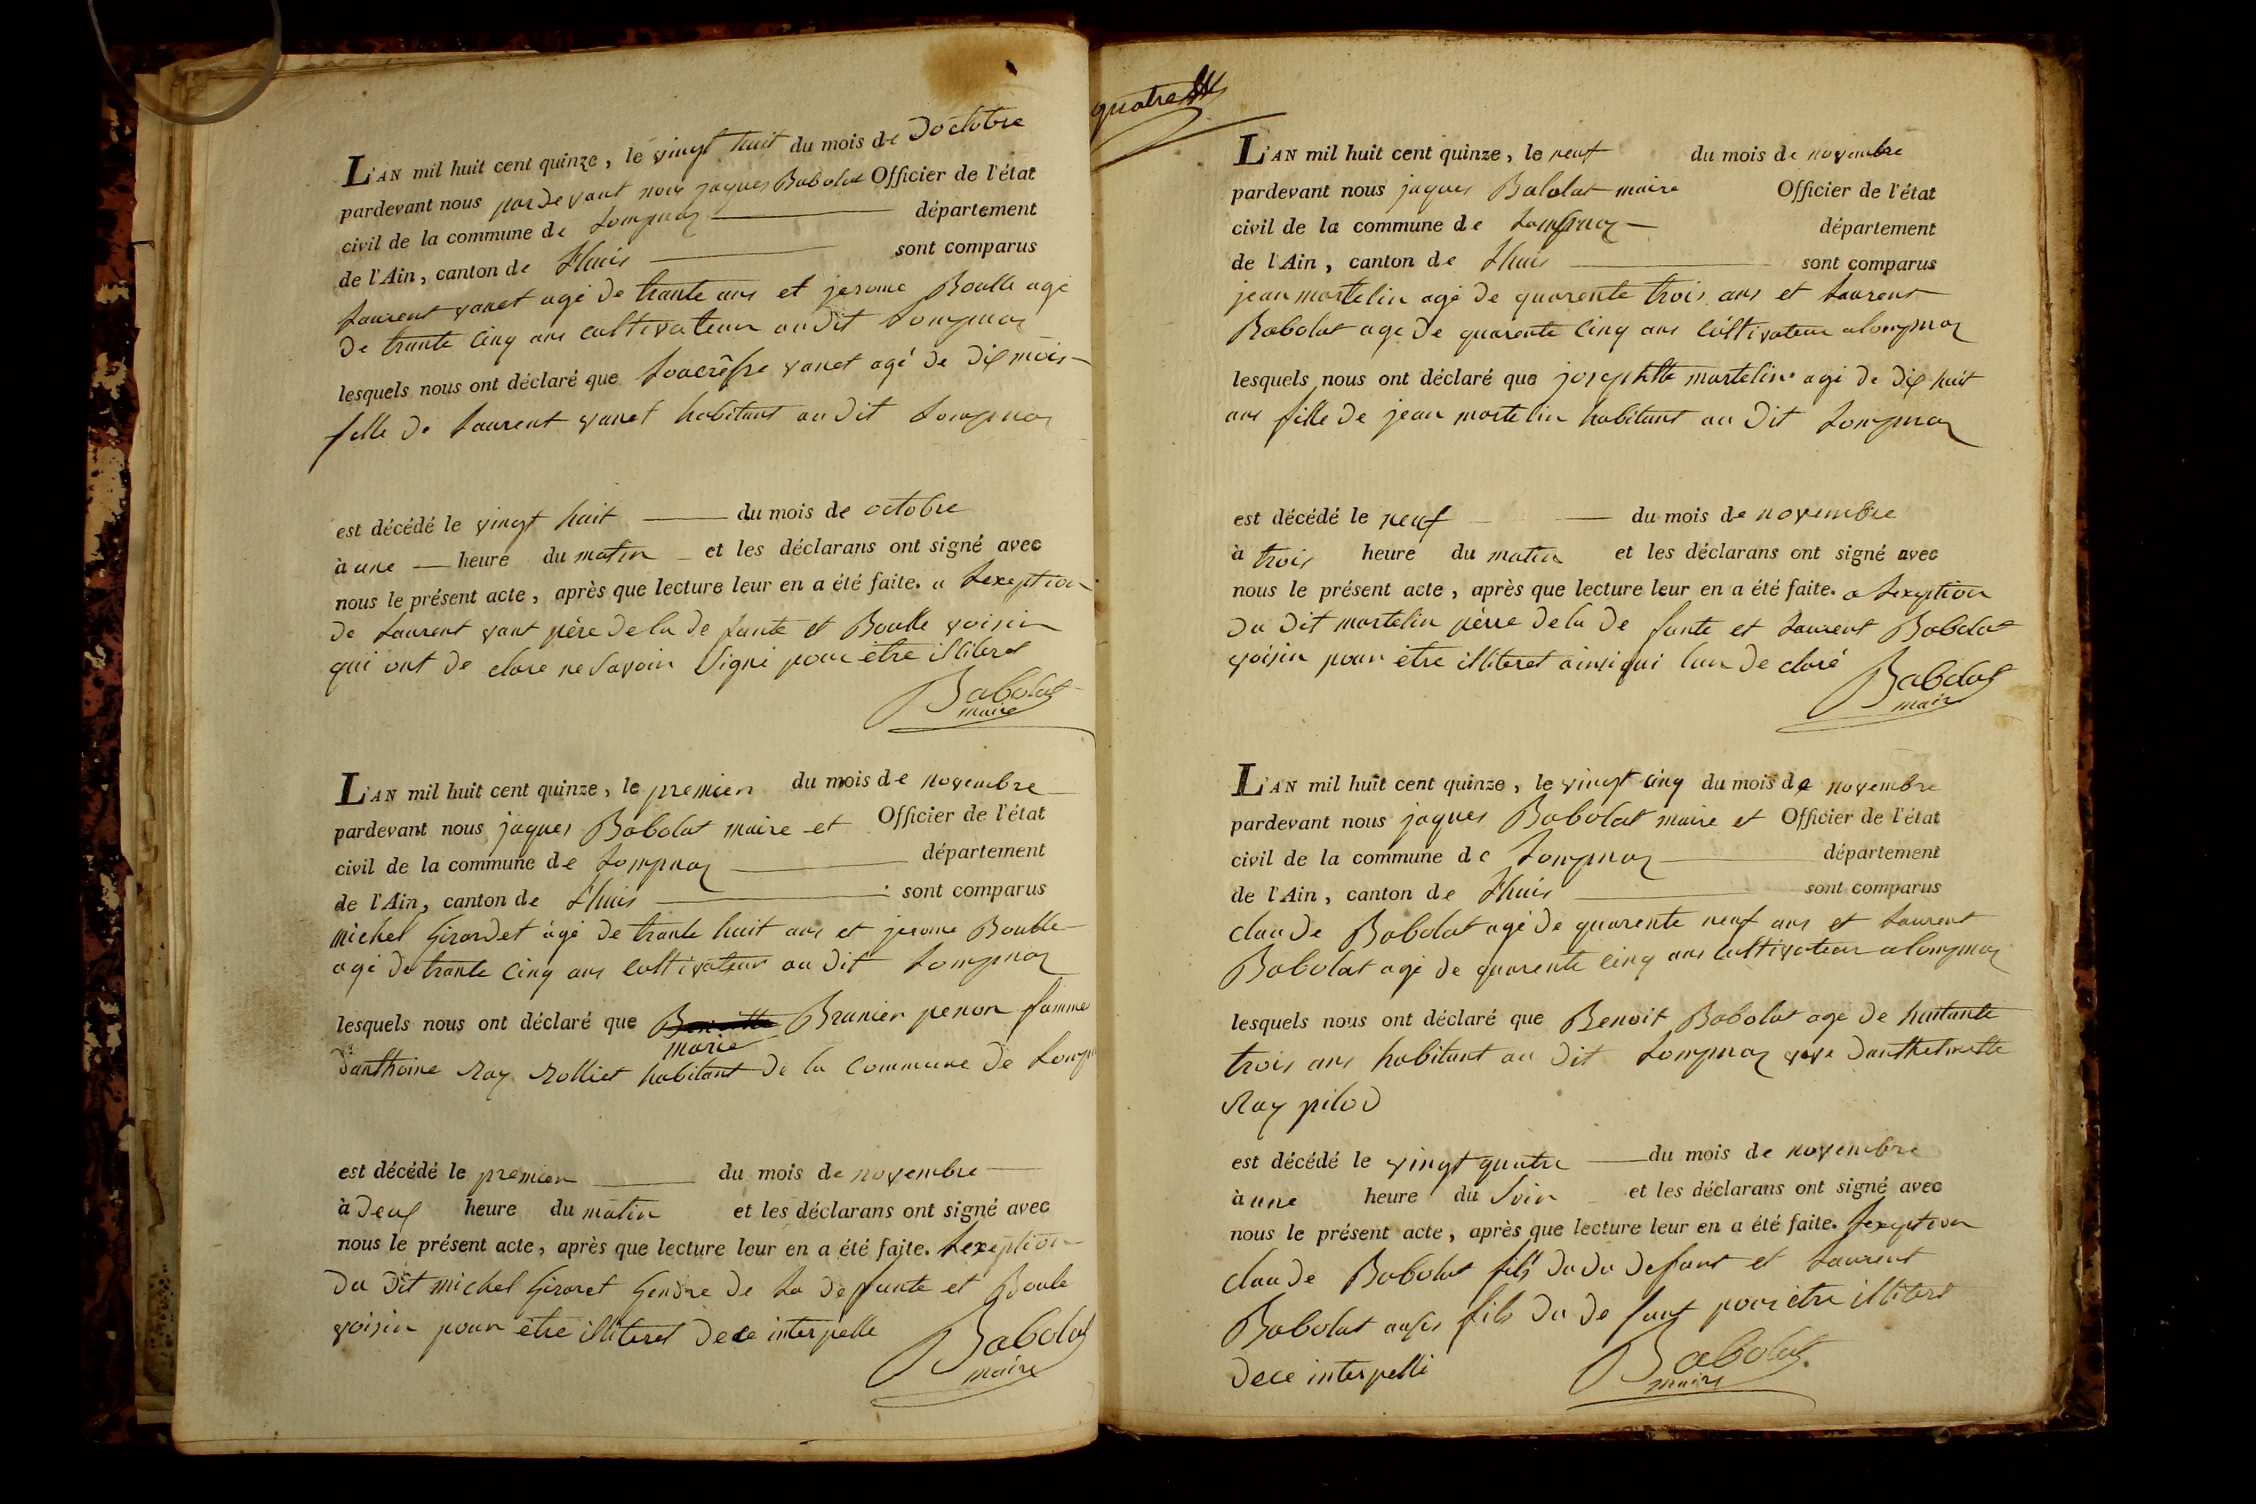 L'AN mil huit cent quinze, le vingt huit du mois de Doctobre
pardevant nous par devant nous jaques Babolat Officier de l'état
civil de la commune de Lompnaz département
de l'Ain, canton de Lhuis sont comparus
Laurent vanet agé de trante ans et jerome Boulle agé
de trante cinq ans cultivateur audit Lompnaz
lesquels nous ont déclaré que vanet agé de dix mois
fille de Laurent vanet habitant au dit Lompnaz
est décédé le vingt huit du mois de octobre
à une heure du matin et les déclarans ont signé avec
nous le présent acte, après que lecture leur en a été faite. a Lexeption
de Laurent vant père de la de funte et Boulle voisin
qui ont de clare ne Savoir Signé pour être illiteret
Babolat
maire
L'AN mil huit cent quinze, le premier du mois de novembre
pardevant nous jaques Babolat maire et Officier de l'état
civil de la commune de Lompnaz département
de l'Ain, canton de Lhuis sont comparus
michel Girardet agé de trante huit ans et jerome Boulle
agé de trante cinq ans cultivateur au dit Lompnaz
lesquels nous ont déclaré que Brunier penon famme
marie
Danthoine Ray Rolliet habitant de la Commune de Lomp
est décédé le premier du mois de novembre
à deux heure du matin et les déclarans ont signé avec
nous le présent acte, après que lecture leur en a été faite. Lexeption
du dit michel Giraret Gendre de La de funte et Boule
voisin pour être illiteret de ce interpelle
Babolat
maire
quatre
L'AN mil huit cent quinze, le neuf du mois de novembre
pardevant nous jaques Babolat maire Officier de l'état
civil de la commune de Lompnaz département
de l'Ain, canton de Lhuis sont comparus
jean martelin agé de quarente trois ans et Laurent
Babolat age de quarente cinq ans Cultivateur alompnaz
lesquels nous ont déclaré que josephtte marteline agé de dix huit
ans fille de jean martelin habitant au dit Lompnaz
est décédé le neuf du mois de novembre
à trois heure du matin et les déclarans ont signé avec
nous le présent acte, après que lecture leur en a été faite. a Lexeption
du dit martelin pére de la de funte et Laurent Babolat
voisin pour être illiteret ainsi qui lun de claré
Babolat
maire
L'AN mil huit cent quinze, le vingt cinq du mois de novembre
pardevant nous jaques Babolat maire et Officier de l'état
civil de la commune de Lompnaz département
de l'Ain, canton de Lhuis sont comparus
claude Babolat agé de quarente neuf ans et Laurent
Babolat agé de quarente cinq ans cultivateur alompnaz
lesquels nous ont déclaré que Benoit Babolat agé de huitante
trois ans habitant au dit Lompnaz veve danthelmette
Ray pilod
est décédé le vingt quatre du mois de novembre
à une heure du Soir et les déclarans ont signé avec
nous le présent acte, après que lecture leur en a été faite. Lexeption
claude Babolat fils du du defunt et Laurent
Babolat fils du de funt pour etre illiteret
de ce interpellé
Babolat
maire